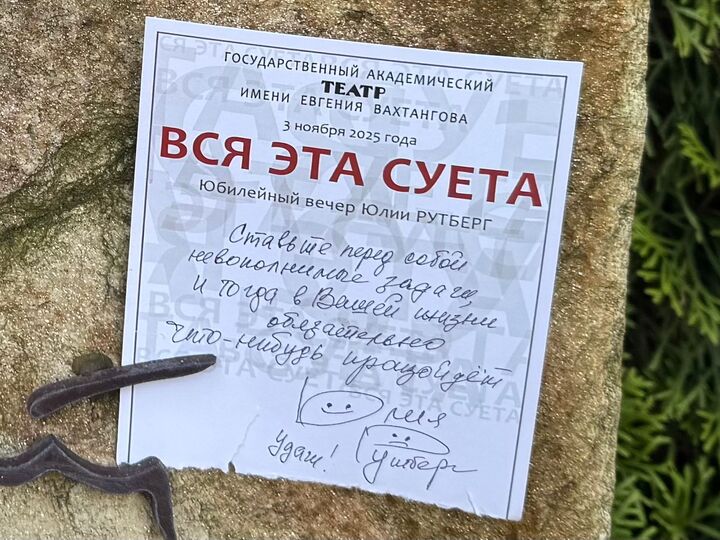 ГОСУДАРСТВЕННЫЙ АКАДЕМИЧЕСКИЙ
ТЕАТР
ИМЕНИ ЕВГЕНИЯ ВАХТАНГОВА
3 ноября 2025 года
ВСЯ ЭТА СУЕТА
Юбилейный вечер Юлии РУТБЕРГ
Ставьте перед собой
невополнимые задачи,
и тогда в Вашей жизни
обязательно
что-нибудь произойдёт
Юлия
Удачи! Рутберг